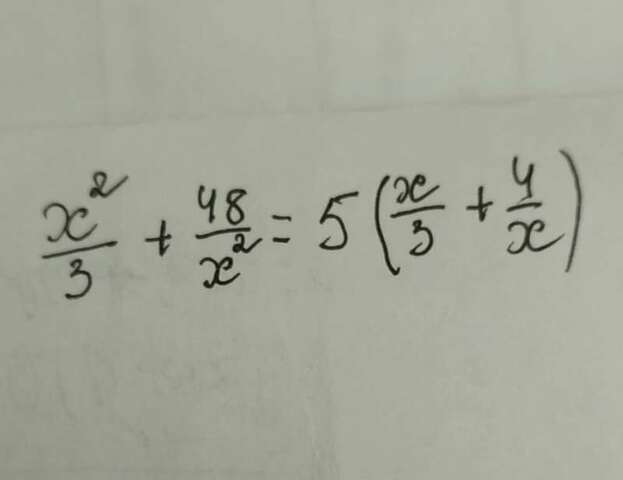 x²/3 + 48/x² = 5(x/3 + 4/x)